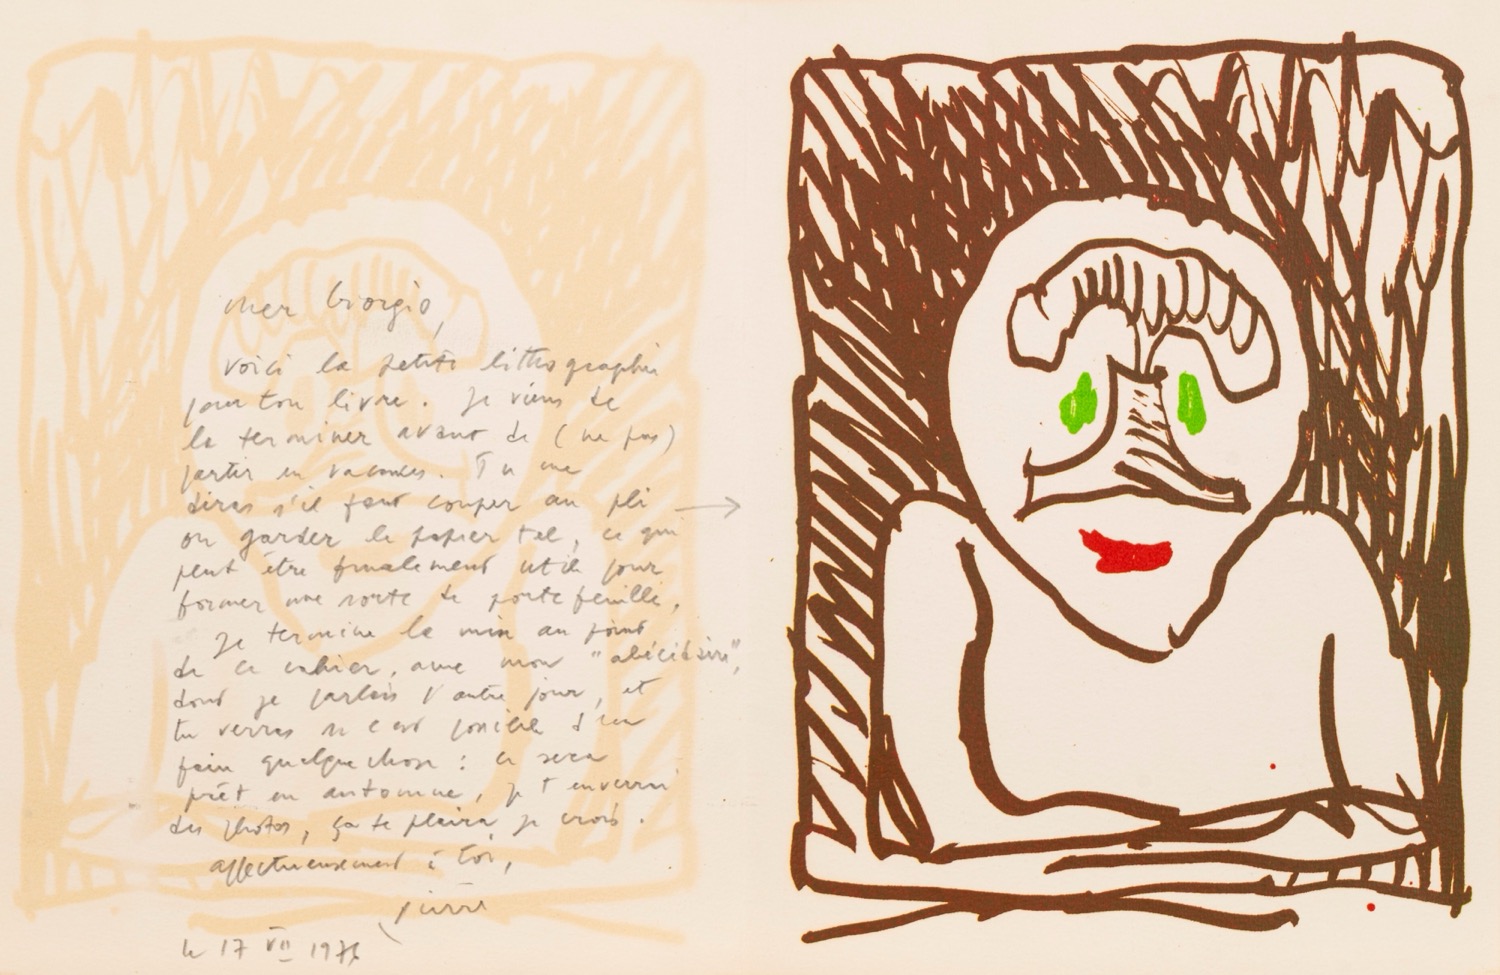 mer Giorgio,
voici la petite lithographie
pour ton livre. Je viens de
la terminer avant de (ne pas)
partir en vacances. Tu me
diras s'il faut couper au pli →
ou garder le papier tel, ce qui
peut être finalement utile pour
former une sorte de portefeuille.
Je termine la mise au point
de ce cahier, avec mon "abécédaire",
dont je parlais l'autre jour, et
tu verras si c'est possible d'en
faire quelque chose : ce sera
prêt en automne, je t'enverrai
des photos, ça te plaira je crois.
affectueusement à toi,
pierre
le 17 VII 1976